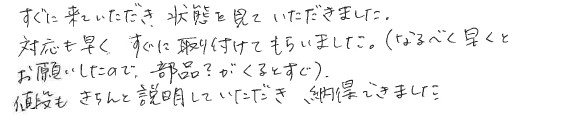 すぐに来ていただき 状態を見ていただきました.
対応も早く すぐに取り付けてもらいました。(なるべく早くと
お願いしたので、部品?がくるとすぐ).
値段も きちんと説明していただき 納得できました